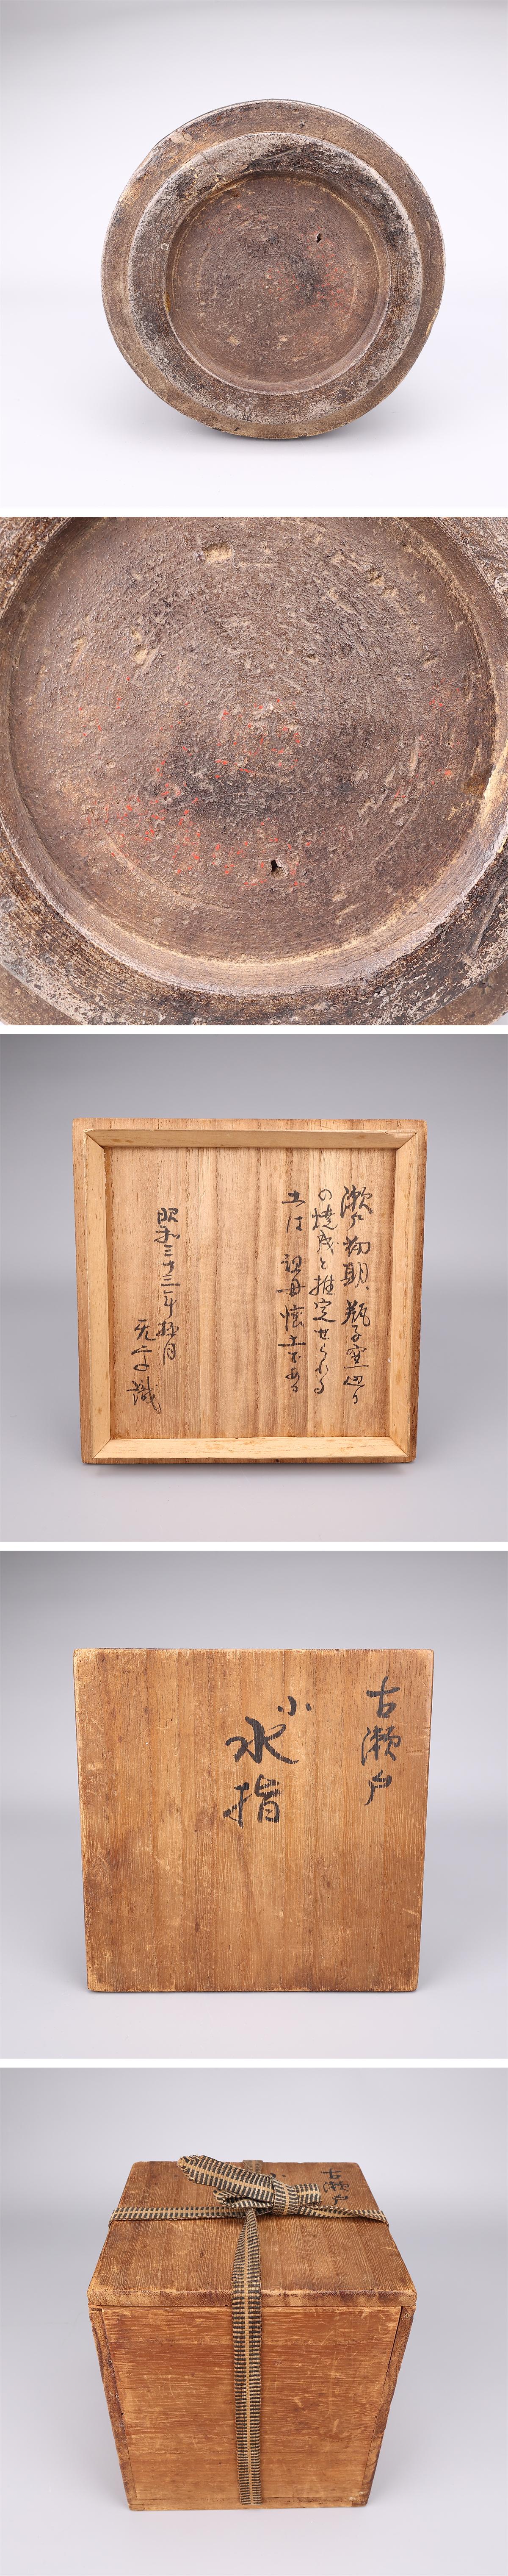 瀬戸初期、瓶子窯辺り
の焼成と推定せられる
土は 祖母懐土である
昭和三十三年極月
識
古瀬戸
小
水
指
古瀬戸